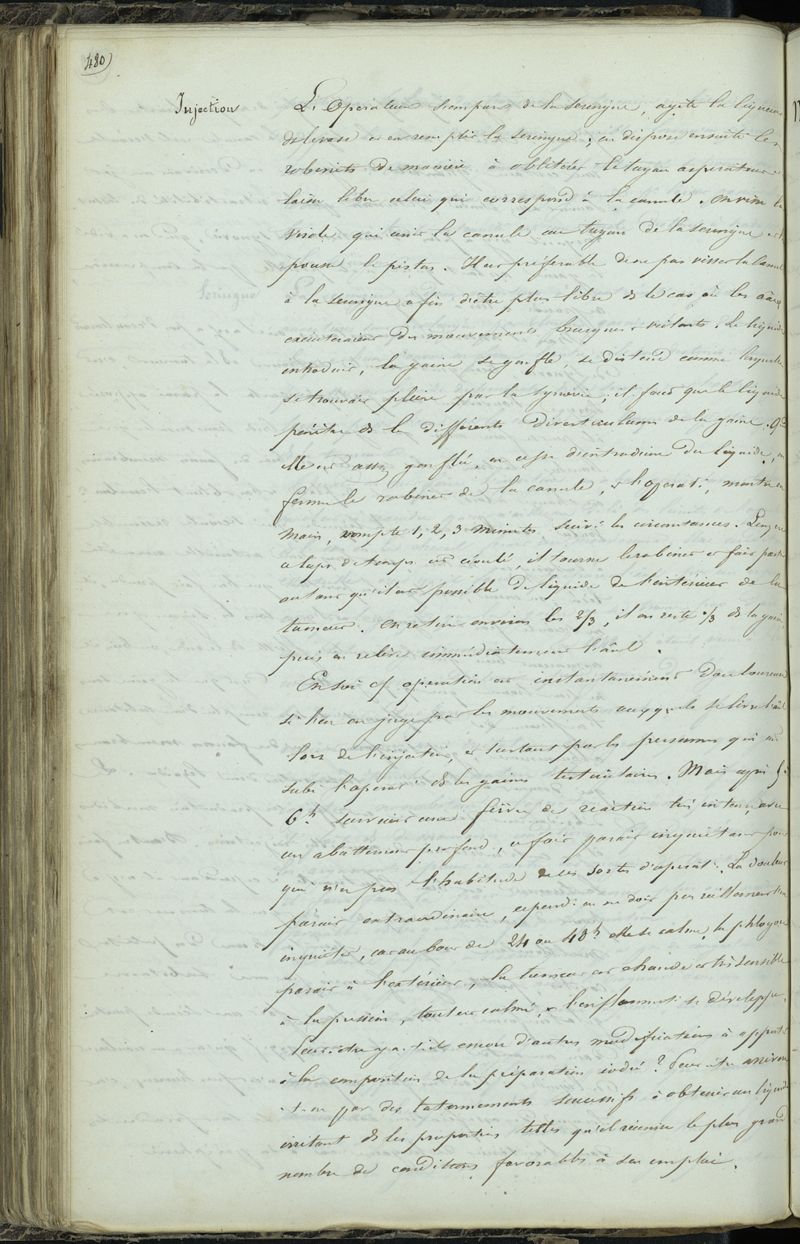 480
Injection
L'Operateur s'empare de la seringue, agite la liqueur
ds le vase et en remplit la seringue; on dispose ensuite les
robinets de manière à oblitérer le tuyau aspirateur et
laisse libre celui qui correspond à la canule. On visse la
virole qui unit la canule au tuyau de la seringue et
pousse le piston. Il est préférable de ne pas visser la canule
à la seringue afin d'être plus libre ds le cas où les
exécuteraient des mouvements brusques violents. Le liquide
introduit, la gaine se gonfle, se distend comme lorsqu'elle
se trouvait pleine par la synovie; il faut que le liquide
pénètre ds les différents diverticulums de la gaine. Qd
elle est assez gonflée, on cesse d'introduire du liquide, on
ferme le robinet de la canule, & l'opérat. montre en
main, compte 1, 2, 3 minutes suivt les circonstances. Lorsque
ce laps de temps est écoulé, il tourne le robinet et fait partir
autant qu'il est possible de liquide de l'intérieur de la
tumeur. On retire environ les 2/3, il en reste 1/3 ds la gaine
puis on relève immédiatement l'aal.
En soi cf operation est instantanément douloureuse
si l'on en juge par les mouvements auxquels se livre l'aal
lors de l'injection, et surtout par les personnes qui ont
subi l'operat. ds les gaines testiculaires. Mais après 5 à
6 h survient une fièvre de reaction très intense, avec
un abattement profond, ce fait parait inquiétant pour
qui n'a pas l'habitude de ces sortes d'operat. La douleur
parait extraordinaire, cependt on ne doit pas réellement s'en
inquieter, car au bout de 24 ou 48 h elle se calme, le phlegmon
parait à l'extérieur, la tumeur est chaude et très sensible
à la pression, tout se calme, & l'enflammt se développe.
Peut être y a-t-il encore d'autres modifications à apporter
à la composition de la préparation iodée? Peut être arrivera
-t-on par des tatonnements successifs à obtenir un liquide
irritant ds les proportions telles qu'il réunisse le plus grand
nombre de conditions favorables à son emploi.